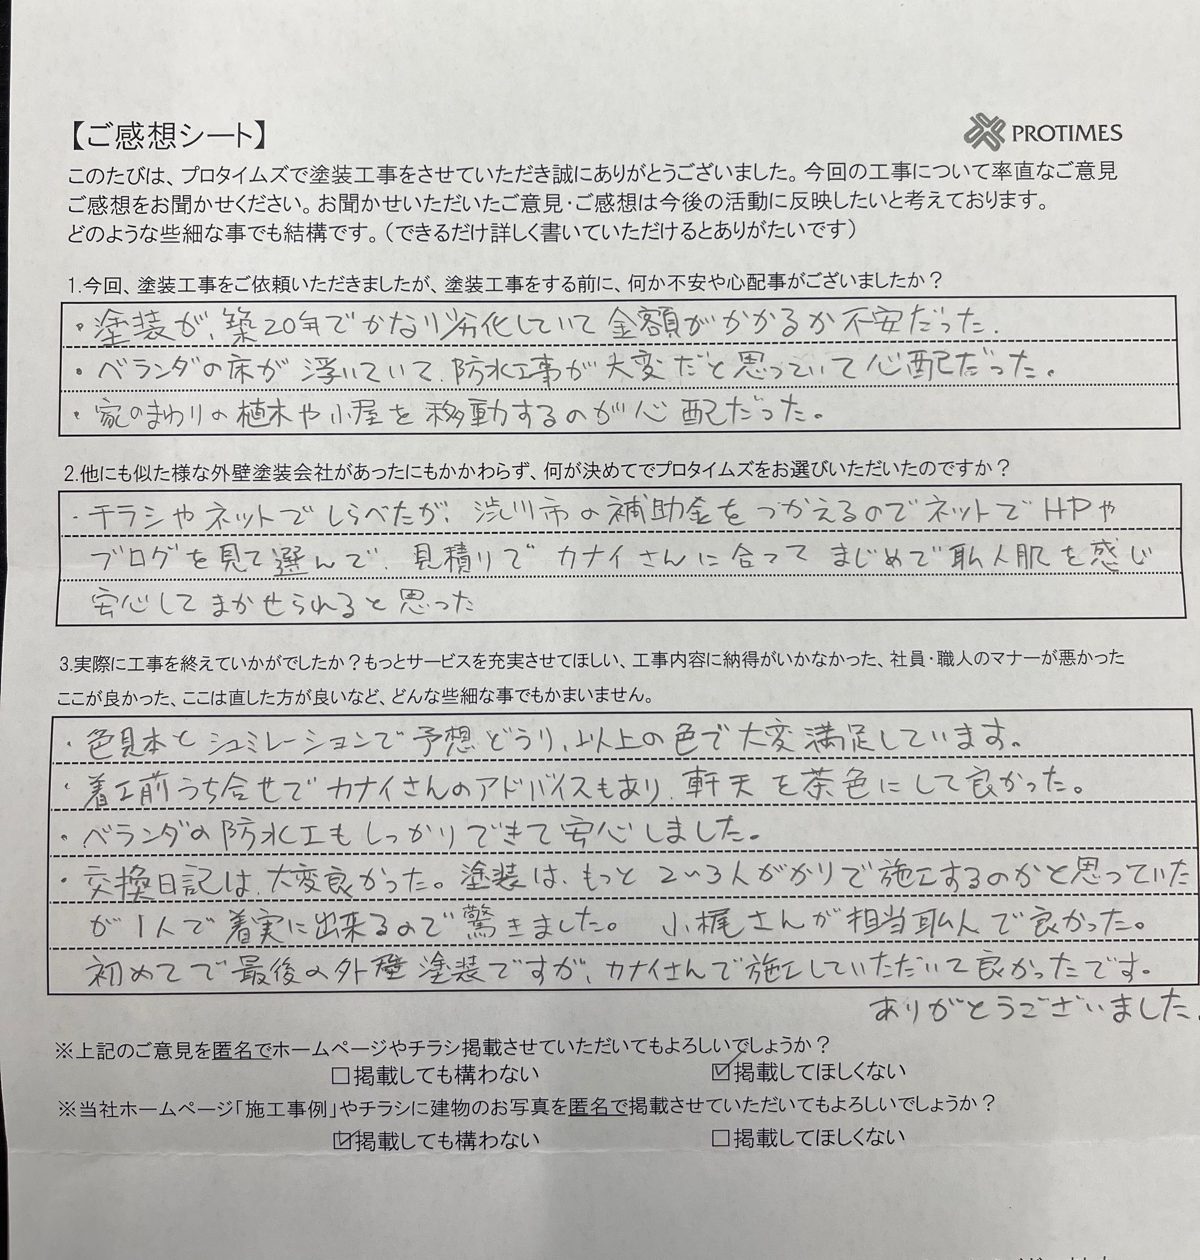 【ご感想シート】
PROTIMES
このたびは、プロタイムズで塗装工事をさせていただき誠にありがとうございました。今回の工事について率直なご意見
ご感想をお聞かせください。お聞かせいただいたご意見・ご感想は今後の活動に反映したいと考えております。
どのような些細な事でも結構です。（できるだけ詳しく書いていただけるとありがたいです）
1.今回、塗装工事をご依頼いただきましたが、塗装工事をする前に、何か不安や心配事がございましたか？
・塗装が、築20年でかなり劣化していて金額がかかるか不安だった.
・ベランダの床が浮いていて、防水工事が大変だと思っていて心配だった。
・家のまわりの植木や小屋を移動するのが心配だった。
2.他にも似た様な外壁塗装会社があったにもかかわらず、何が決めてでプロタイムズをお選びいただいたのですか？
・チラシやネットでしらべたが、渋川市の補助金をつかえるのでネットでHPや
ブログを見て選んで、見積りでカナイさんに合ってまじめで職人肌を感じ
安心してまかせられると思った
3.実際に工事を終えていかがでしたか？もっとサービスを充実させてほしい、工事内容に納得がいかなかった、社員・職人のマナーが悪かった
ここが良かった、ここは直した方が良いなど、どんな些細な事でもかまいません。
・色見本とシュミレーションで予想どうり、以上の色で大変満足しています。
・着工前うち合せでカナイさんのアドバイスもあり、軒天を茶色にして良かった。
・ベランダの防水工もしっかりできて安心しました。
・交換日記は、大変良かった。塗装は、もっと2～3人がかりで施工するのかと思っていた
が1人で着実に出来るので驚きました。 小梶さんが相当職人で良かった。
初めてで最後の外壁塗装ですが、カナイさんで施工していただいて良かったです。
ありがとうございました.
※上記のご意見を匿名でホームページやチラシ掲載させていただいてもよろしいでしょうか？
□掲載しても構わない ☑掲載してほしくない
※当社ホームページ「施工事例」やチラシに建物のお写真を匿名で掲載させていただいてもよろしいでしょうか？
☑掲載しても構わない □掲載してほしくない